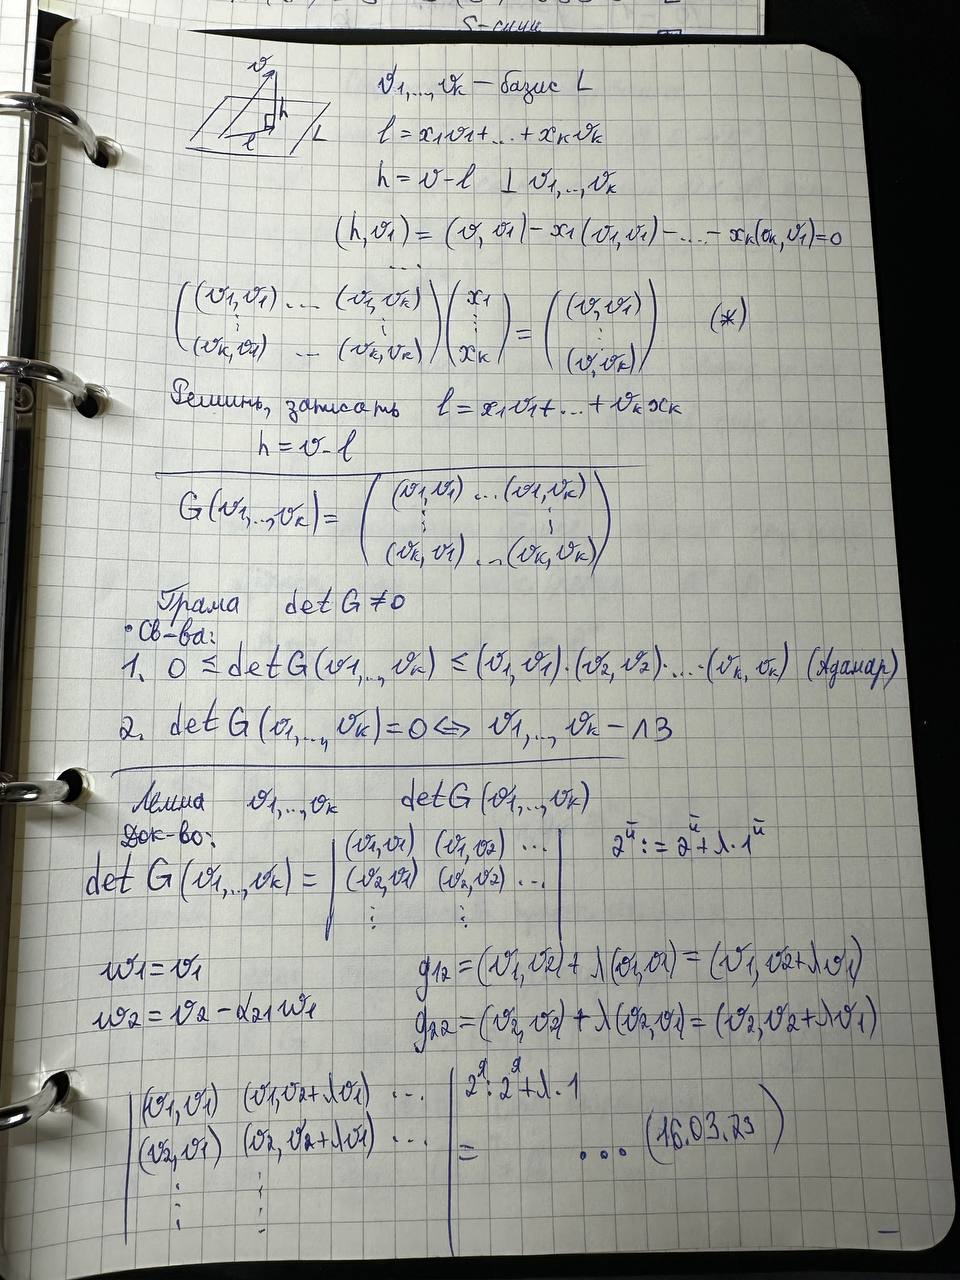 S-сили
v
h
l
L
v1,...,vk – базис L
l = x1v1+...+xkvk
h = v-l ⊥ v1,...,vk
(h,v1) = (v,v1) - x1(v1,v1) - .... - xk(vk,v1)=0
...
((v1,v1) ... (v1,vk)) (x1) = ((v,v1)) (*)
⋮ ⋮ ⋮ ⋮
(vk,v1) ... (vk,vk) xk (v,vk)
Решишь, записать l = x1v1+...+vkxk
h = v-l
G(v1,...,vk) = ((v1,v1) ...(v1,vk)
⋮ ⋮
(vk,v1) ...(vk,vk))
Грама det G ≠ 0
• Св-ва:
1. 0 ≤ det G(v1,...,vk) ≤ (v1,v1)·(v2,v2)·...·(vk,vk) (Адамар)
2. det G(v1,...,vk)=0 ⇔ v1,...,vk – ЛЗ
Лемма v1,...,vk det G(v1,...,vk)
Док-во:
det G(v1,...,vk) = | (v1,v1) (v1,v2) ... | 2й := 2й + λ·1й
(v2,v1) (v2,v2) ...
⋮ ⋮
w1 = v1 g12 = (v1,v2) + λ(v1,v1) = (v1,v2+λv1)
w2 = v2 - α21w1 g22 = (v2,v2) + λ(v2,v1) = (v2,v2+λv1)
| (v1,v1) (v1,v2+λv1) ... | 2я: 2я+λ·1
(v2,v1) (v2,v2+λv1) ... = ... (16.03.23)
⋮ ⋮